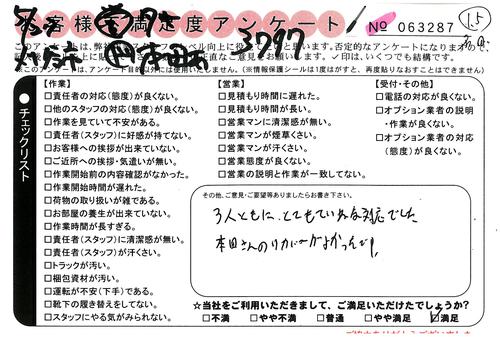 お客様満足度アンケート
No 063287
3797
15
チェックリスト
【作業】
□責任者の対応(態度)が良くない。
□他のスタッフの対応(態度)が良くない。
□作業を見ていて不安がある。
□責任者(スタッフ)に好感が持てない。
□お客様への挨拶が出来ていない。
□ご近所への挨拶・気遣いが無い。
□作業開始前の内容確認がなかった。
□作業開始時間が遅れた。
□荷物の取り扱いが雑である。
□お部屋の養生が出来ていない。
□作業時間が長すぎる。
□責任者(スタッフ)に清潔感が無い。
□責任者(スタッフ)が汗くさい。
□トラックが汚い。
□梱包資材が汚い。
□運転が不安(下手)である。
□靴下の履き替えをしてない。
□スタッフにやる気がみられない。
【営業】
□見積もり時間に遅れた。
□見積もり時間が長い。
□営業マンに清潔感が無い。
□営業マンが煙草くさい。
□営業マンが汗くさい。
□営業態度が良くない。
□営業の説明と作業が一致してない。
【受付・その他】
□電話の対応が良くない。
□オプション業者の説明
・作業が良くない。
□オプション業者の対応
(態度)が良くない。
その他、ご意見・ご要望等ありましたらお書き下さい。
3人ともに、とてもていねいな対応でした
本田さんのリカバーがよかったです。
☆当社をご利用いただきまして、ご満足いただけたでしょうか?
□不満 □やや不満 □普通 □やや満足 ☑満足